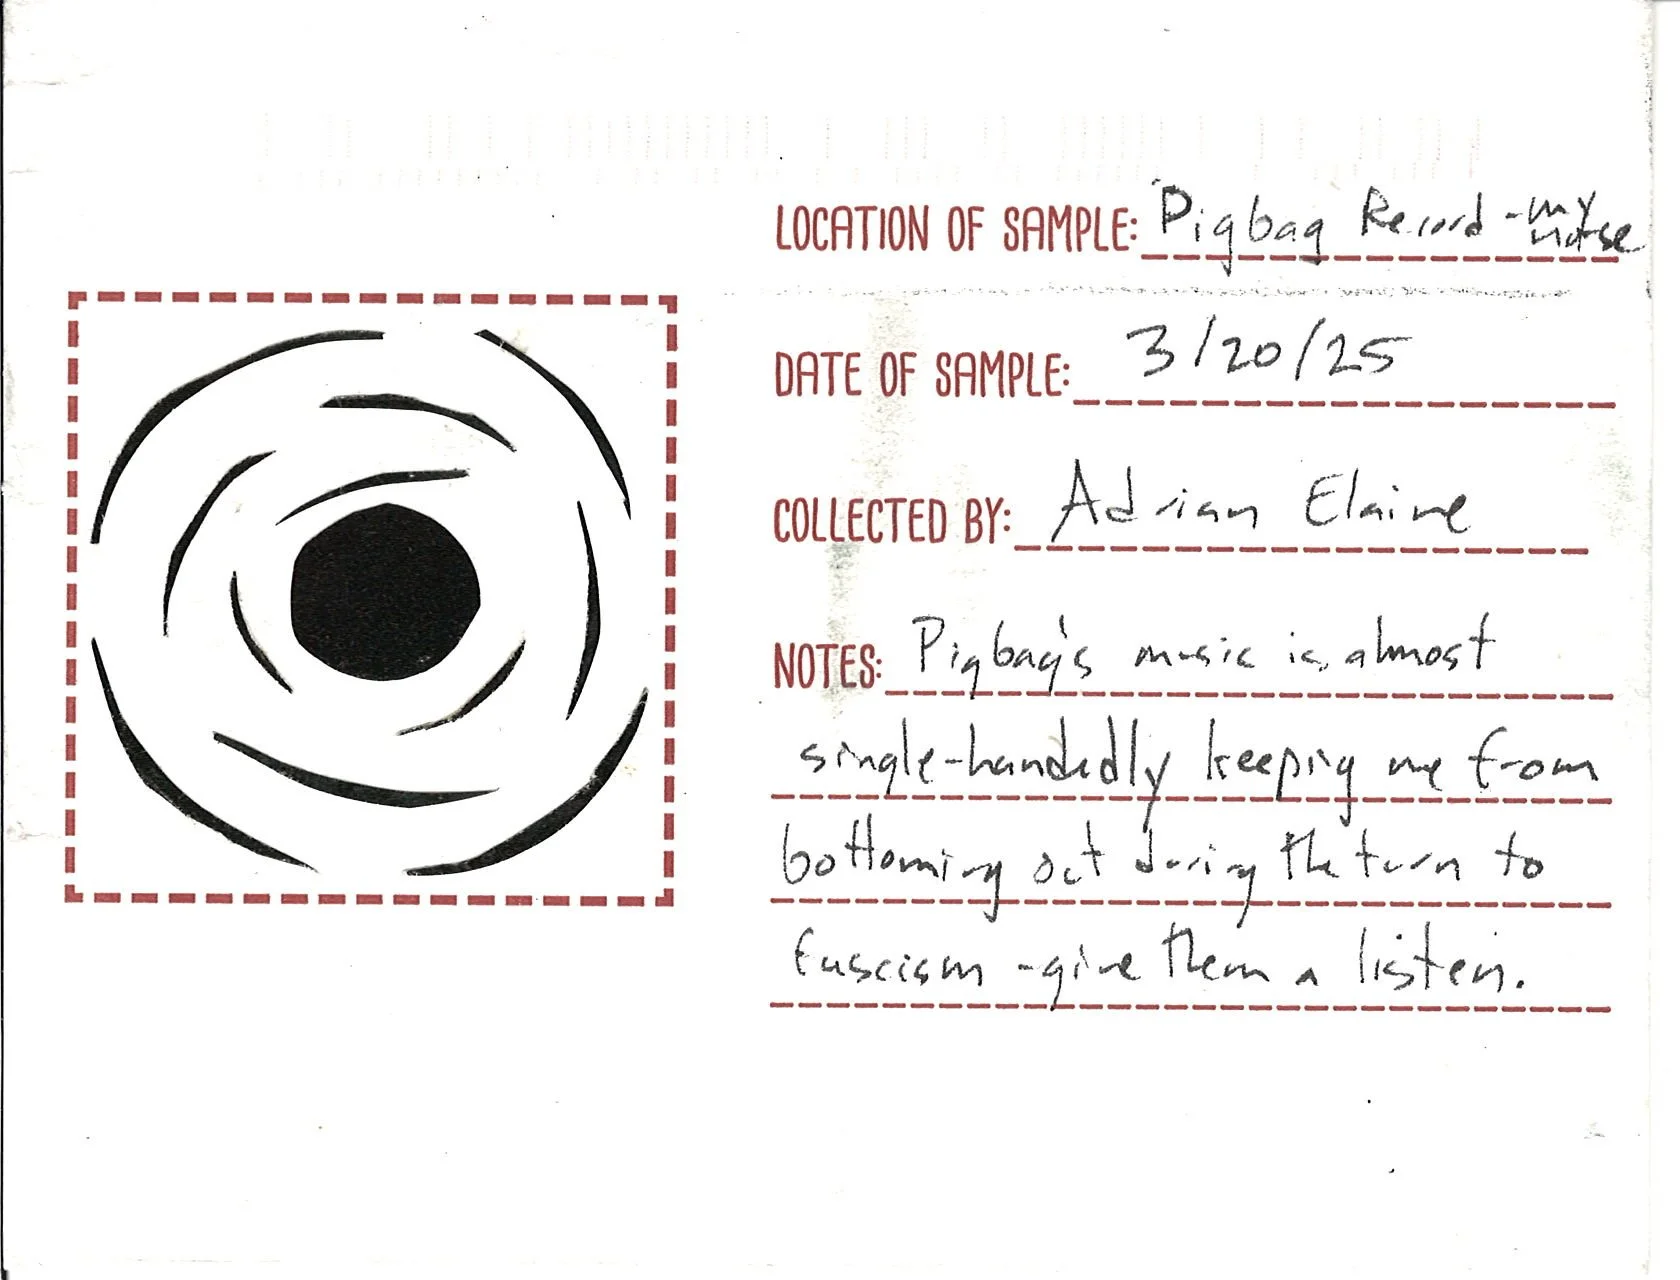 LOCATION OF SAMPLE: Pigbag Record - my house
DATE OF SAMPLE: 3/20/25
COLLECTED BY: Adrian Elaine
NOTES: Pigbag's music is almost
single-handedly keeping me from
bottoming out during the turn to
fascism - give them a listen.